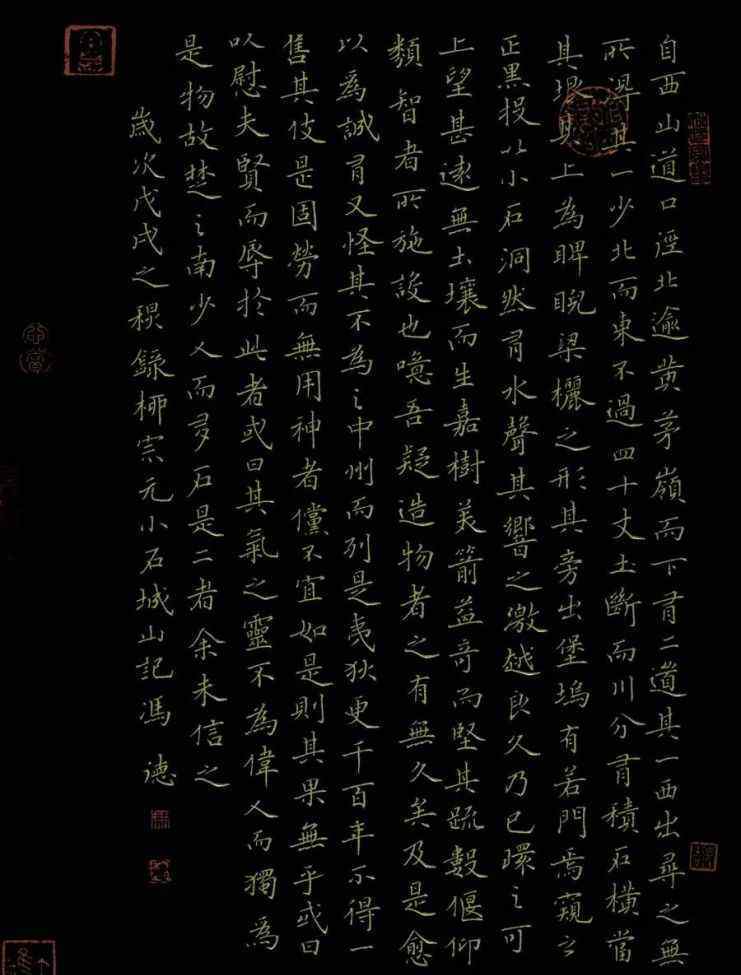 自西山道口逕北逾黄茅嶺而下有二道其一西出尋之無
所得其一少北而東不過四十丈土斷而川分有積石橫當
其垠其上為睥睨梁欐之形其旁出堡塢有若門焉窺之
正黑投以小石洞然有水聲其響之激越良久乃已環之可
上望甚遠無土壤而生嘉樹美箭益奇而堅其疏數偃仰
類智者所施設也噫吾疑造物者之有無久矣及是愈
以為誠有又怪其不為之中州而列是夷狄更千百年不得一
售其伎是固勞而無用神者儻不宜如是則其果無乎或曰
以慰夫賢而辱於此者或曰其氣之靈不為偉人而獨為
是物故楚之南少人而多石是二者余未信之
歲次戊戌之穐錄柳宗元小石城山記馮德